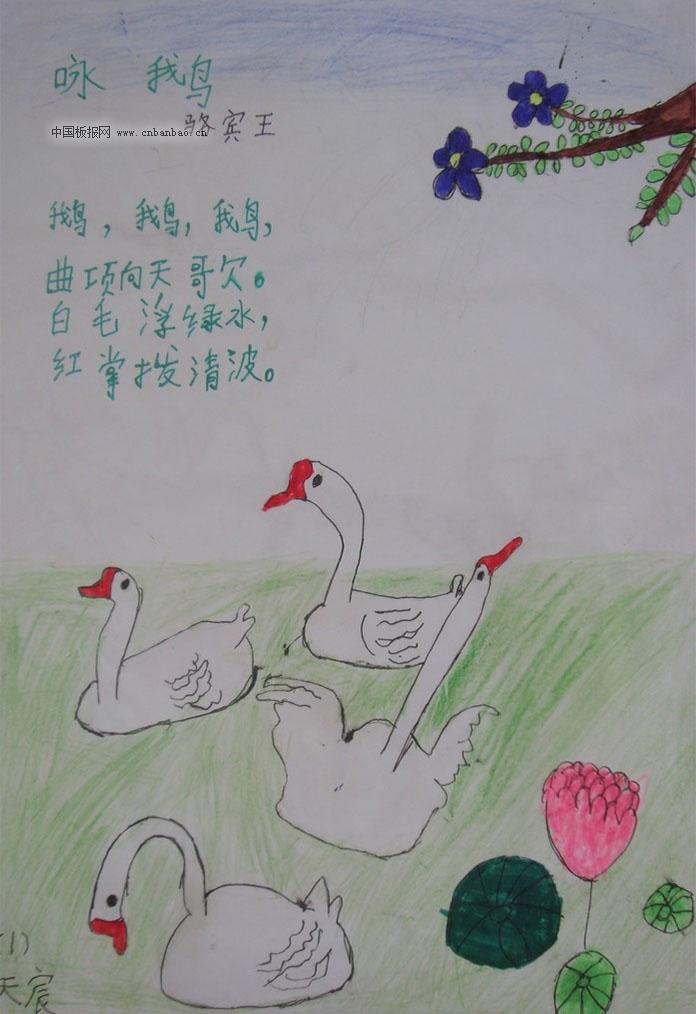 咏 鹅
骆宾王
中国板报网 www.cnbanbao.cn
鹅，鹅，鹅，
曲项向天歌。
白毛浮绿水，
红掌拨清波。
(1)
天宸